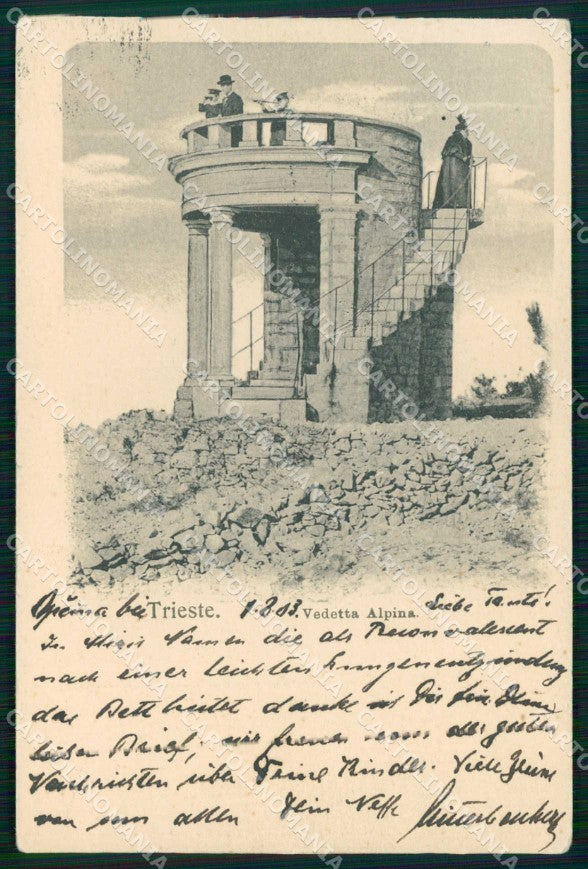 Opčina bei Trieste. 1.8.03. Vedetta Alpina. Liebe Tante!
In Mizis Namen die als Reconvalescent
nach einer leichten Lungenentzündung
das Bett hütet danke ich Dir für Deinen
lieben Brief; wir freuen uns der guten
Nachrichten über Deine Kinder. Viele Grüsse
von uns allen Dein Neffe
CARTOLINOMANIA